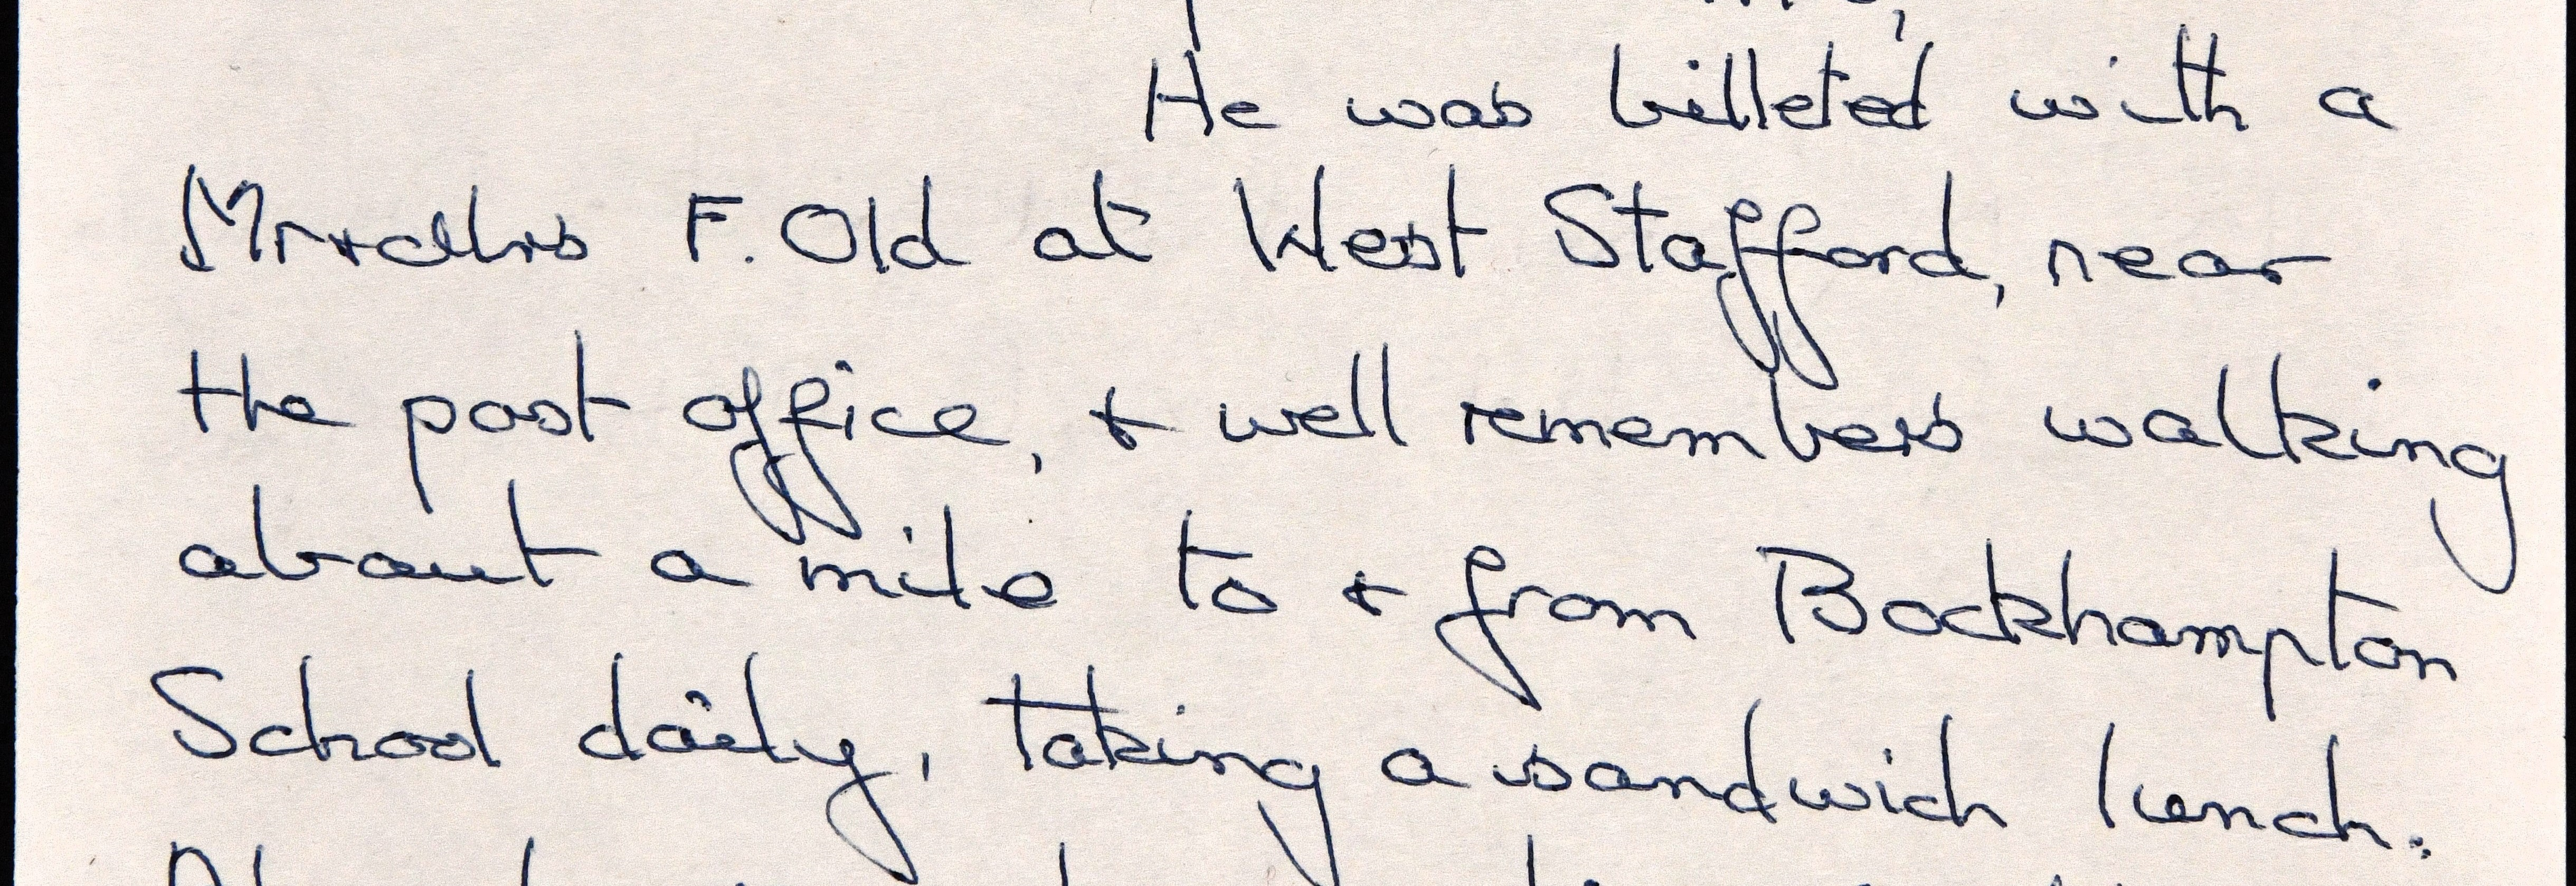 He was billeted with a
Mr & Mrs F. Old at West Stafford, near
the post office, & well remembers walking
about a mile to & from Bockhampton
School daily, taking a sandwich lunch.